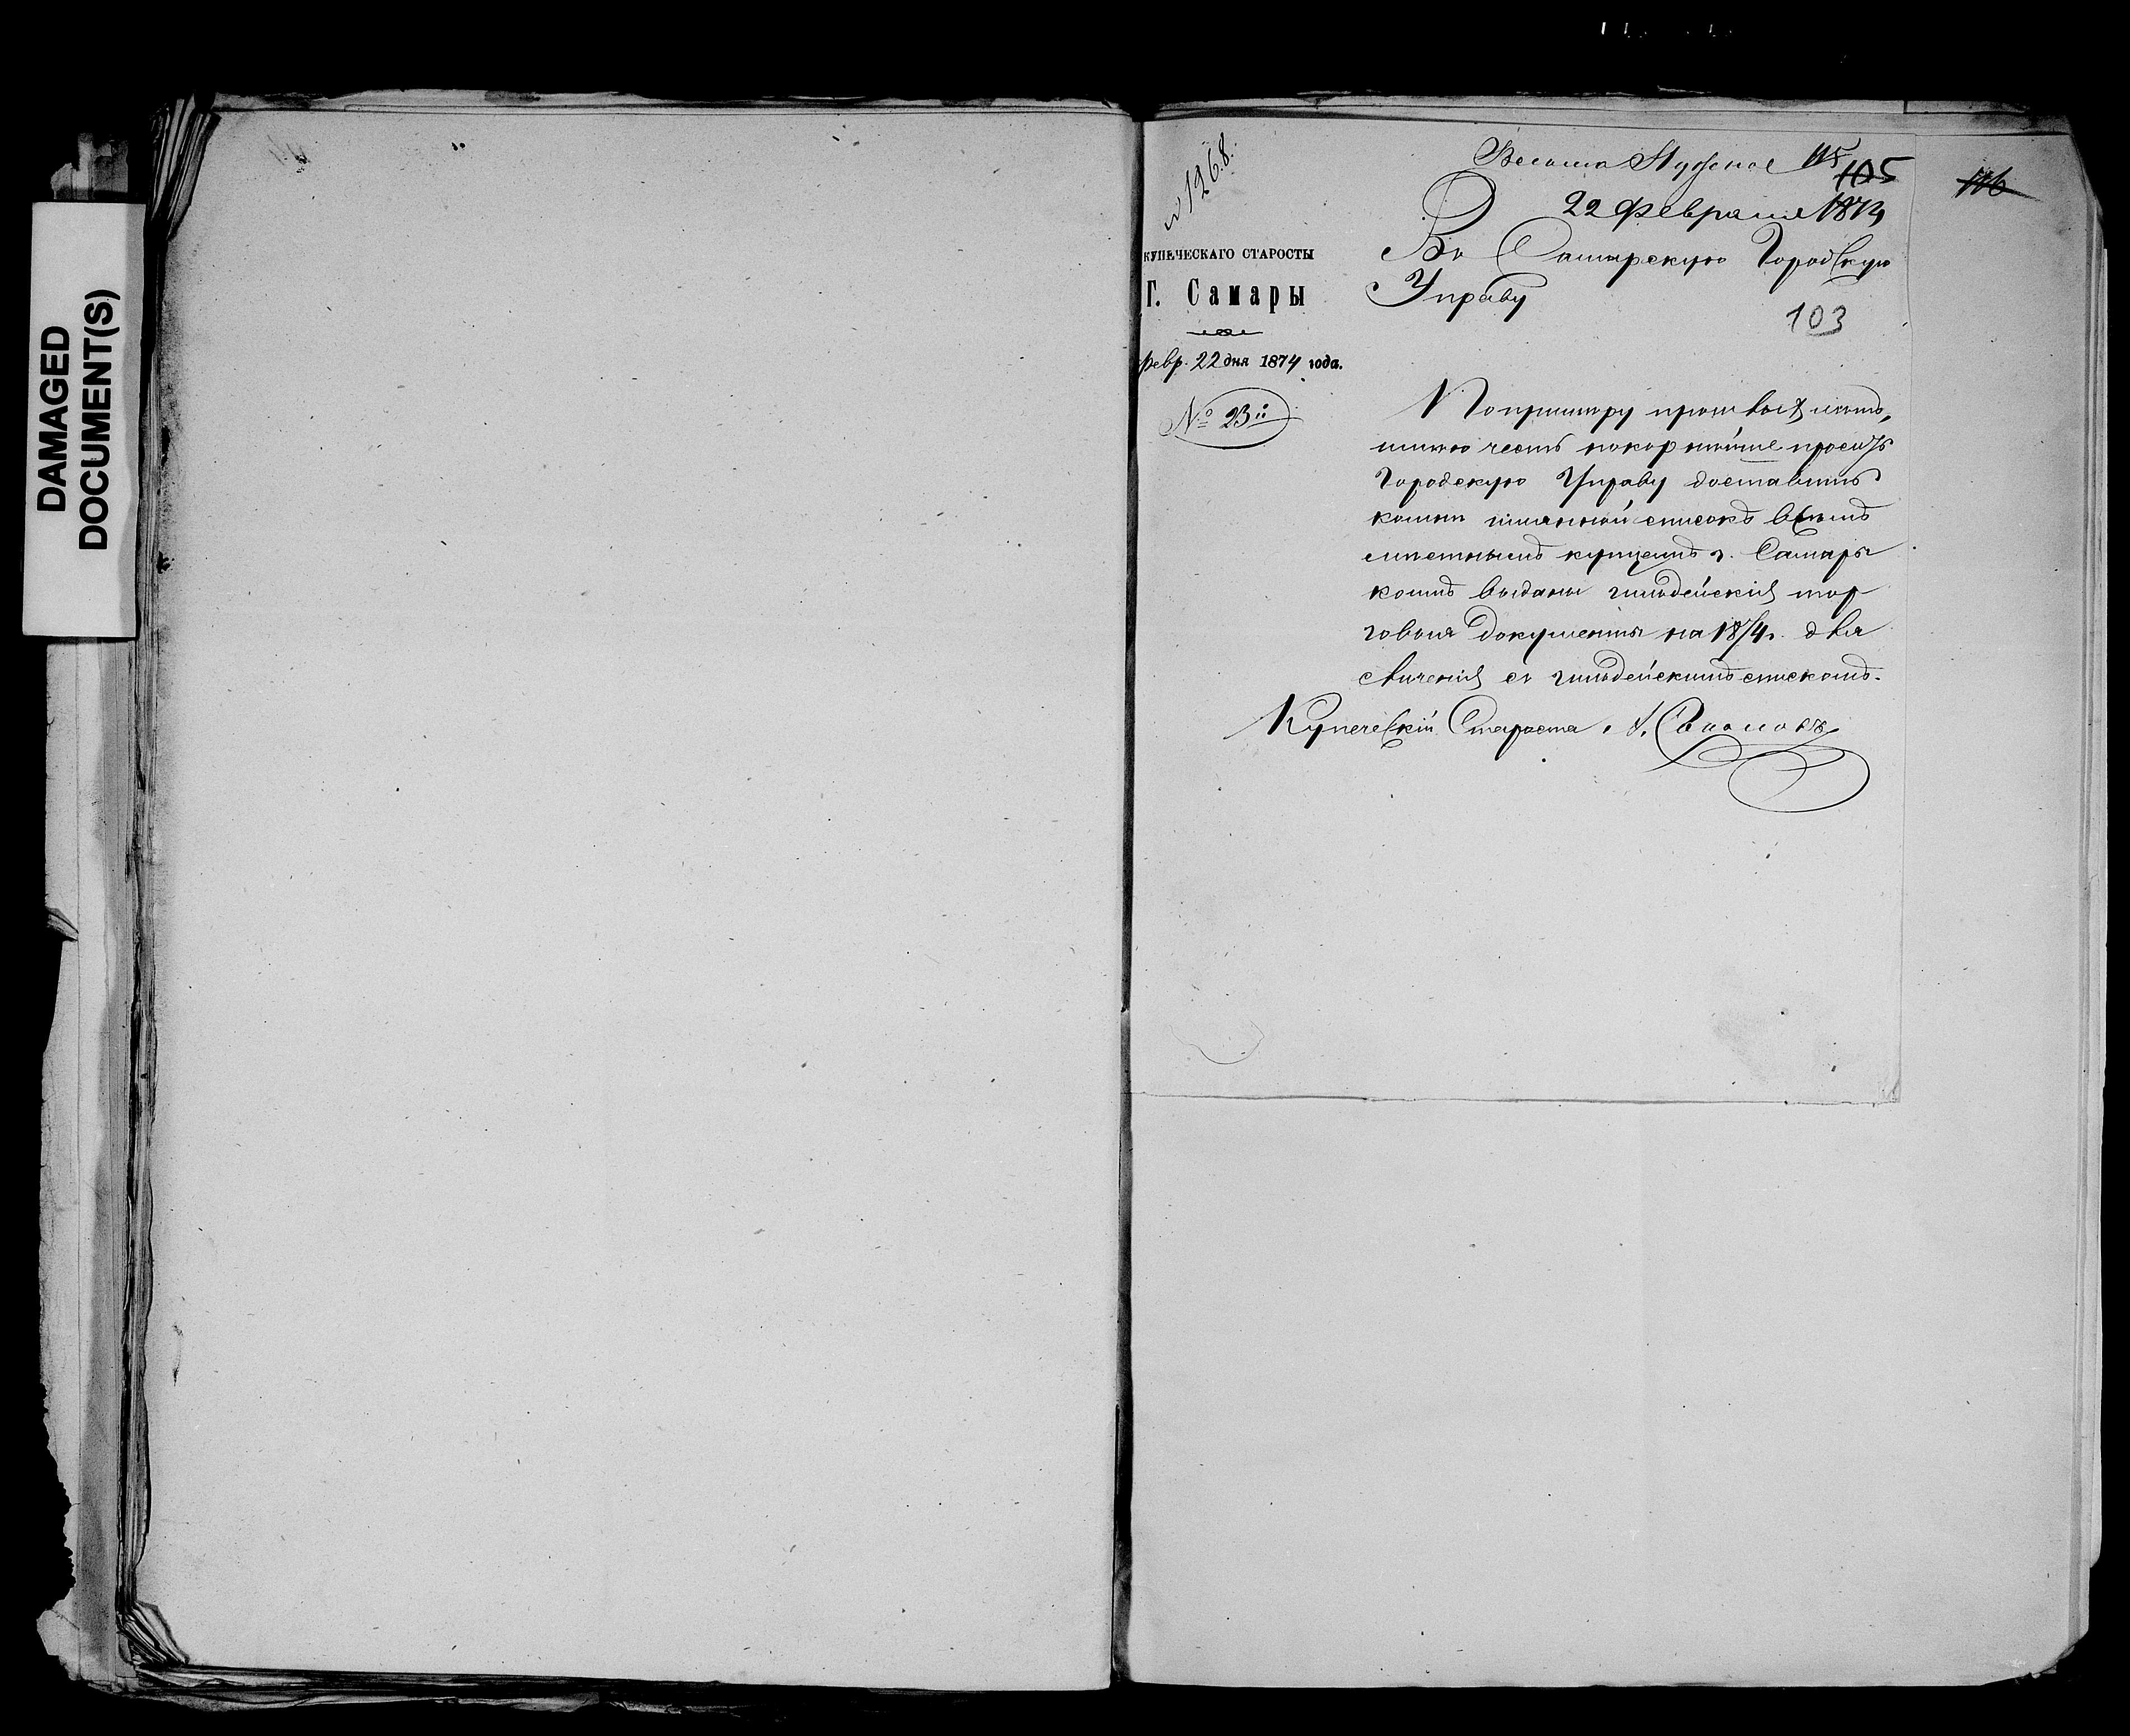 DAMAGED
DOCUMENT(S)
№ 1268.
КУПЕЧЕСКАГО СТАРОСТЫ
Г. Самары
февр. 22 дня 1874 года.
№ 23й
Весьма Нужное 115
105
116
22 Февраля 1874
Въ Самарскую Городскую
Управу
103
По примѣру прошлыхъ лѣтъ,
имѣю честь покорнѣйше просить
Городскую Управу доставить
ко мнѣ имянной списокъ всѣмъ
мѣстнымъ купцамъ г. Самары
коимъ выданы гильдейскія тор
говыя документы на 1874 г. для
сличенія съ гильдейскимъ спискомъ.
Купеческій Староста